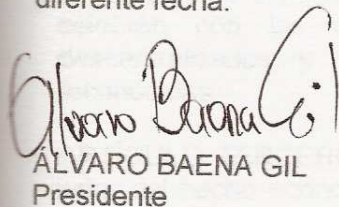 diferente fecha.
Alvaro Baena Gil
ÁLVARO BAENA GIL
Presidente